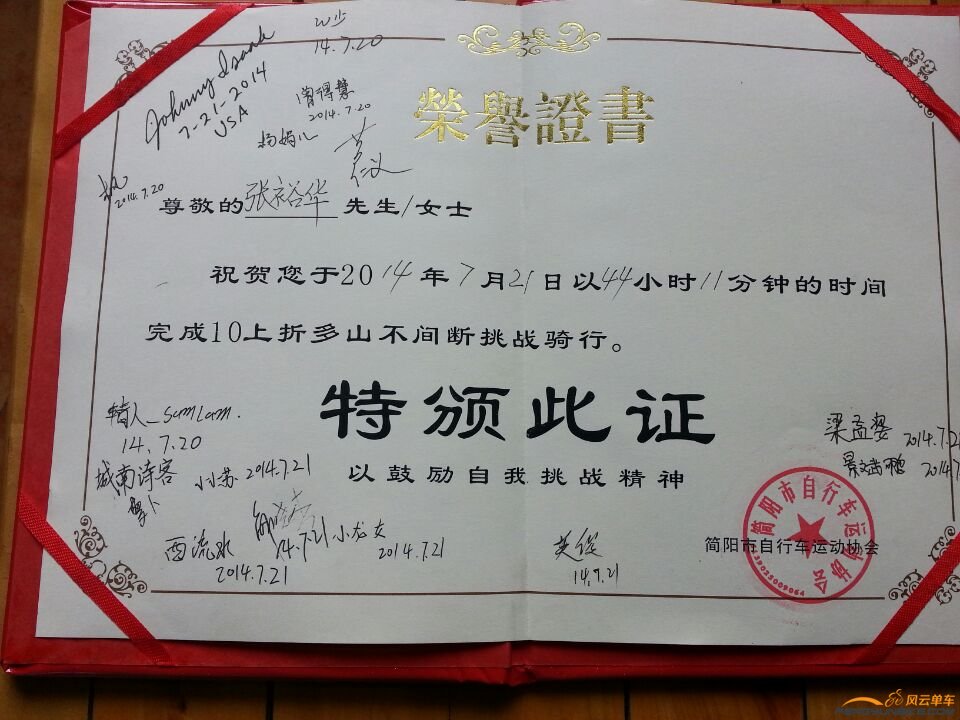 14.7.20
Johnny Isaak
7-21-2014
USA
2014.7.20
榮譽證書
2014.7.20
尊敬的张裕华 先生/女士
祝贺您于2014年7月21日以44小时11分钟的时间
完成10上折多山不间断挑战骑行。
特颁此证
以鼓励自我挑战精神
SamLam.
14.7.20
城南诗客
小苏 2014.7.21
萝卜
西流水
2014.7.21
14.7.21
小龙女
2014.7.21
14.7.21
梁孟
2014.7.21
简阳市自行车运动协会
简阳市自行车运动协会
风云单车